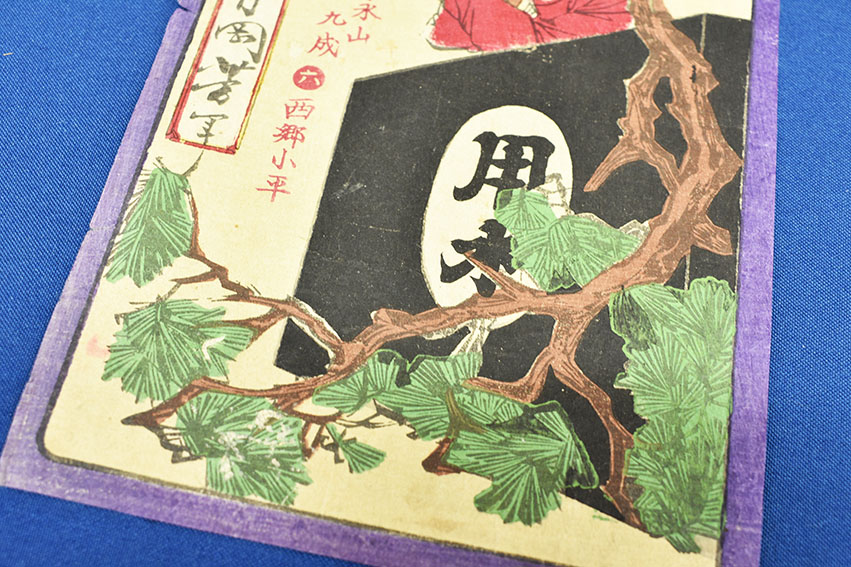 用水
永山九成 六 西郷小平
月岡芳年